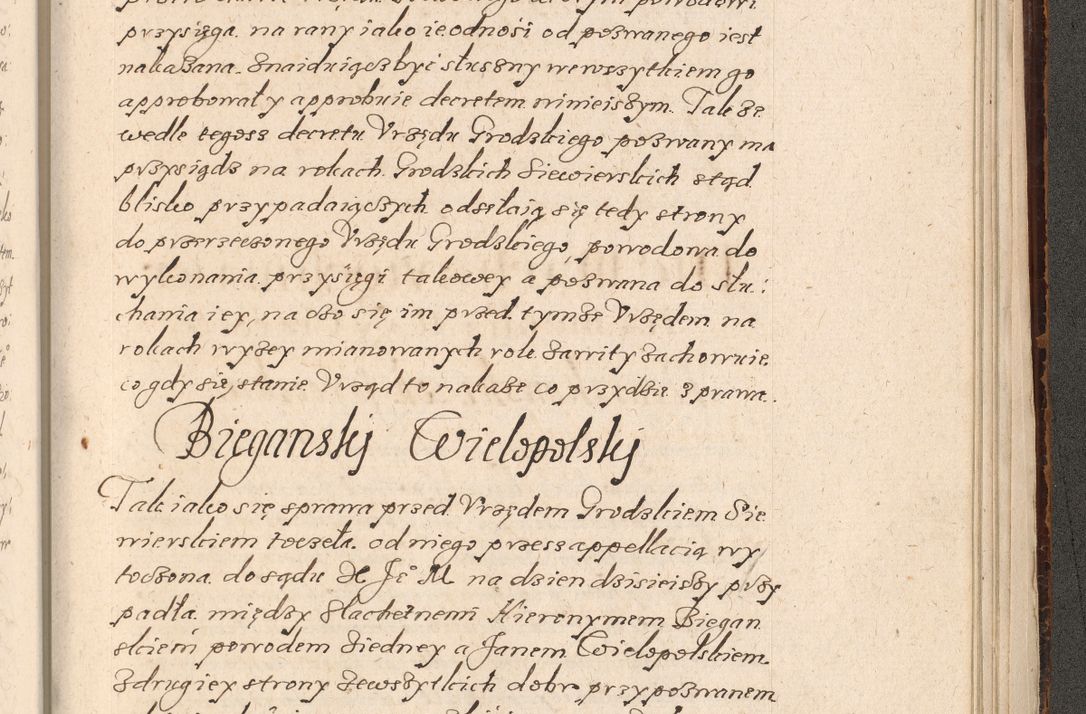 przysięga na rany iako ieodności od poswanego iest
nakazana. Znaiduiącz być słuszny we wszytkiem go
approbował y approbuie decretem ninieiszym. Tak że
wedle tegosz decretu Vrzędu Grodzkiego poswany ma
przysiądz na rokach Grodzkich Siewierskich stąd
blisko przypadaiączych odsełaią się tedy strony
do przerzeczonego Vrzędu Grodzkiego, powodowa do
wykonania przysięgi takowey a poswana do słu:
chania iey, na czo się im przed tymże Vrzędem na
rokach wyżey mianowanych rok zawity zachowuie.
co gdy się stanie Vrząd to nakaże co przydzie z prawa.
Biegansky Wielopolsky
Tak iako się sprawa przed Vrzędem Grodzkiem Sie
wierskiem toczeła. od niego przess appellacią wy
toczona do sądu X Je° M na dzien dzisieiszy przy
padła między Slachetnem Hieronymem Biegan
skiem powodem ziedney a Janem Wielopolskiem
z drugiey strony zewszytkich dobr przyposwanem